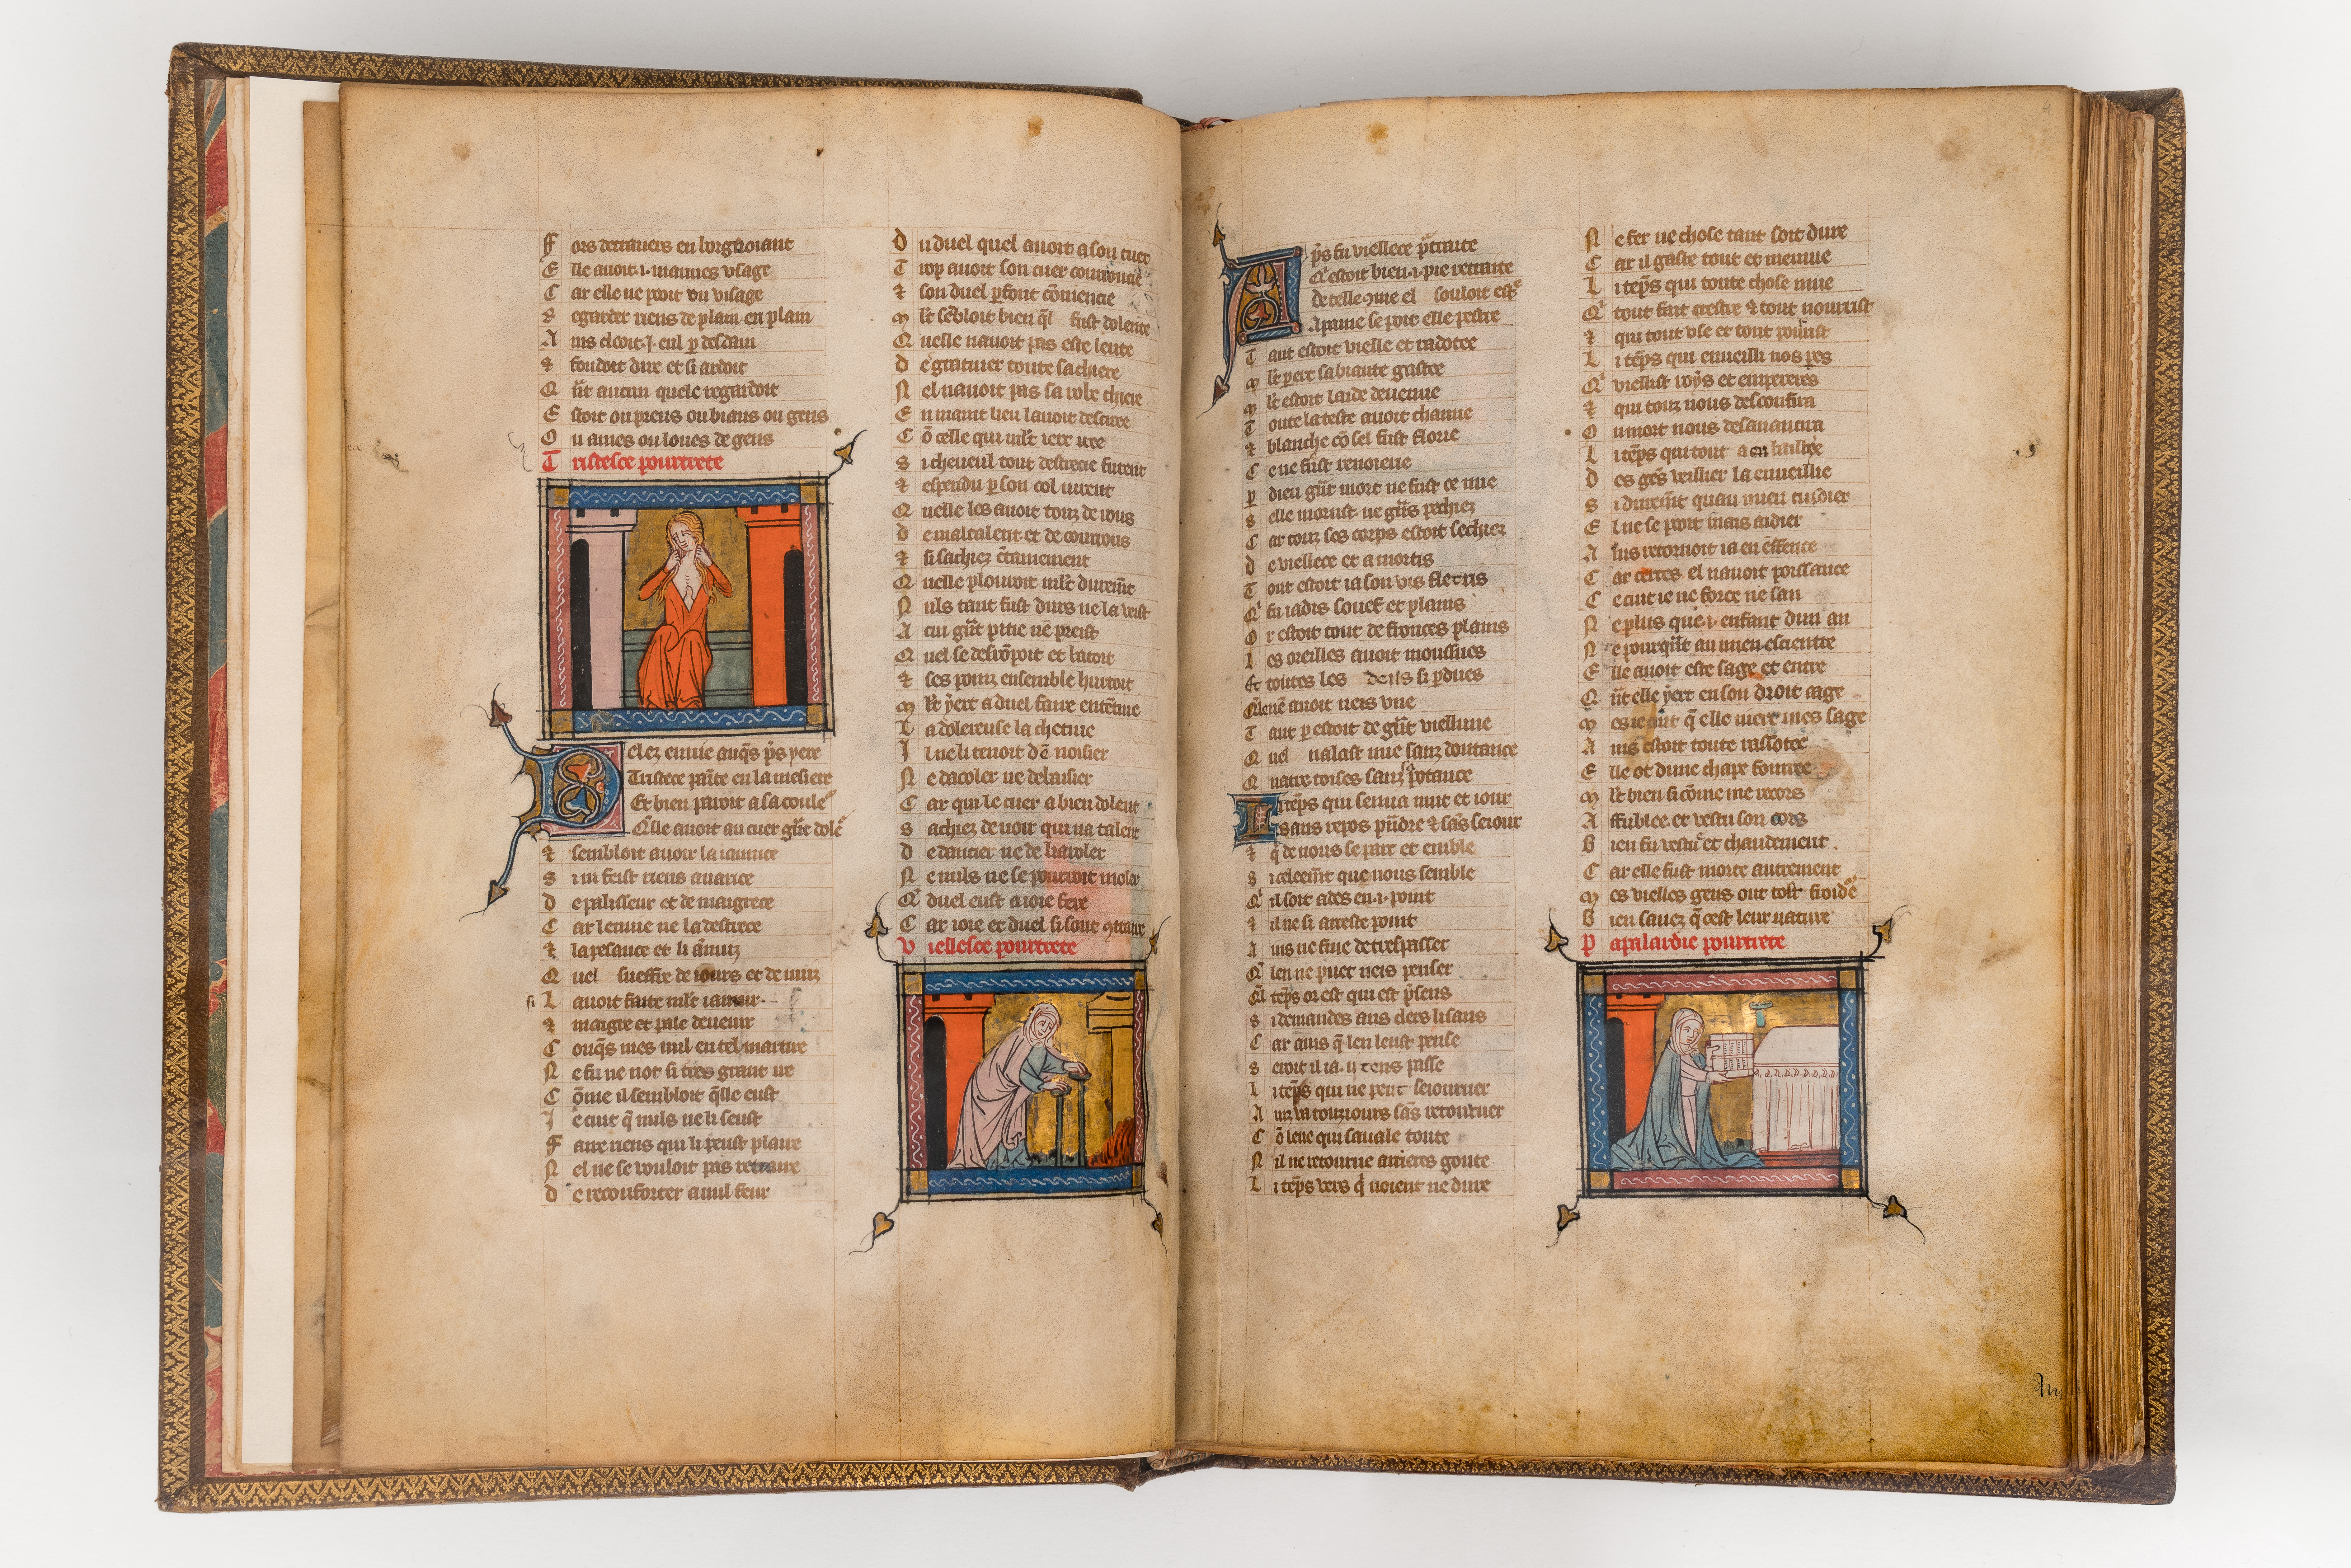 F ors detrauers en borgnoiant
E lle auoit .i. mauues vsage
C ar elle ne pooit ou visage
R egarder riens de plain en plain
A ins clooit .j. eul p desdain
⁊ fondoit dire et si ardoit
Q ñt aucun quele regardoit
E stoit ou preus ou biaus ou gens
O u ames ou loues de gens
T ristesce pourtrete
D elez enuie auq̃s p̃s yere
Tristece painte en la mesiere
Et bien paroit a sa couleʳ
Q̃lle auoit au cuer gñt doleʳ
⁊ sembloit auoir la iaunice
S i ni feist riens auarice
D e palisseur et de maigrece
C ar lenuie ne la destrece
⁊ la pesance et li ãnuiz
Q uel sueffre de iours et de nuiz
si L auoit faite ml̃t iaunir
⁊ maigre et pale deuenir
C onq̃s mes nul en tel martire
N e fu ne not si tres grant ire
C õme il sembloit q̃lle eust
J e cuit q̃ nuls ne li seust
F aire riens qui li peust plaire
N el ne se vouloit pas retraire
D e reconforter a nul feur
D u duel quel auoit a son cuer
T rop auoit son cuer courroucie
⁊ son duel p̃font cõmencie
M l̃t sẽbloit bien q̃l fust dolente
Q uelle nauoit pas este lente
D e gratiner toute sa chiere
N el nauoit pas sa robe chiere
E n maint lieu lauoit desciree
C õ celle qui ml̃t iere iree
S i cheueul tout destrecie furent
⁊ espandu p son col iurent
Q uelle les auoit touz derous
D e maltalent et de courrous
⁊ si sachiez c̃tainement
Q uelle plouroit ml̃t durem̃t
N uls tant fust durs ne la veist
A cui gñt pitie nẽ preist
Q uel se desrõpoit et batoit
⁊ ses poinz ensemble hurtoit
M l̃t yere a duel faire ententiue
L a dolereuse la chetiue
J l ne li tenoit dẽ noisier
N e dacoler ne debaisier
C ar qui le cuer a bien dolent
S achiez de uoir qui na talent
D e dancier ne de karoler
N e nuls ne se pourroit moler
Q̃ duel eust a ioie fere
C ar ioie et duel si sont ꝯtraire
V iellesce pourtrete
A p̃s fu viellece p̃traite
Q̃ estoit bien .i. pie retraite
de telle ꝯme el souloit estʳ
A paine se poit elle pestre
T ant estoit vielle et radotee
M l̃t yere sa biaute gastee
M l̃t estoit laide deuenue
T oute la teste auoit chanue
⁊ blanche cõ sel fust florie
C e ne fust renoierie
P dieu gñt mort ne fust ce mie
S elle morust ne gñs pechiez
C ar touz ses corps estoit sechiez
D e viellece et amortis
T out estoit ia son vis fletris
Q̃ fu iadis souef et plains
O r estoit tout de fronces plains
L es oreilles auoit moussues
Et toutes les dens si p̃dues
Q̃lenẽ auoit neis vne
T ant p estoit de gñt viellune
Q uel nalast mie sanz doutance
Q uatre toises sanz potance
L i tẽps qui senua nuit et iour
sans repos pñdre ⁊ sãs seiour
⁊ q̃ de nous se part et emble
S i celeem̃t que nous semble
Q̃ il soit ades en .i. point
⁊ il ne si arreste point
A ins ne fine detrespasser
Q̃ len ne puet neis penser
Q̃l tẽps or est qui est p̃sens
S i demandes aus clers lisans
C ar ains q̃ len leust pense
S eroit il ia .ij. tens passe
L i tẽps qui ne peut seiourner
A inz va touziours sãs retourner
C õ leue qui sauale toute
N il ne retourne arrieres goute
L i tẽps vers q̃ noient ne dure
N e fer ne chose tant soit dure
C ar il gaste tout et meniue
L i tẽps qui toute chose mue
Q̃ tout fait crestre ⁊ tout nourrist
⁊ qui tout vse et tout pourrist
L i tẽps qui enueilli nos p̃es
Q̃ viellist roys et empereres
⁊ qui touz nous desconfira
O u mort nous desauancira
L i tẽps qui tout a en baillie
D es gẽs veillier la enueillie
S i durem̃t quau mien cuidier
E l ne se pooit mais aidier
A ins retornoit ia en enffence
C ar certes el nauoit poissance
C e cuit ie ne force ne san
N e plus que .i. enfant dun an
N e pourq̃nt au mien escientre
E lle auoit este sage et entre
Q ñt elle yere en son droit aage
M es ie cuit q̃ elle niere mes sage
A ins estoit toute rassotee
E lle ot dune chape fourree
M l̃t bien si cõme ie me recors
A ffublee et vestu son cors
B ien fu vestue et chaudement
C ar elle fust morte autrement
M es vielles gens ont tost froideʳ
B ien sauez q̃ cest leur nature
P apalardie pourtrete